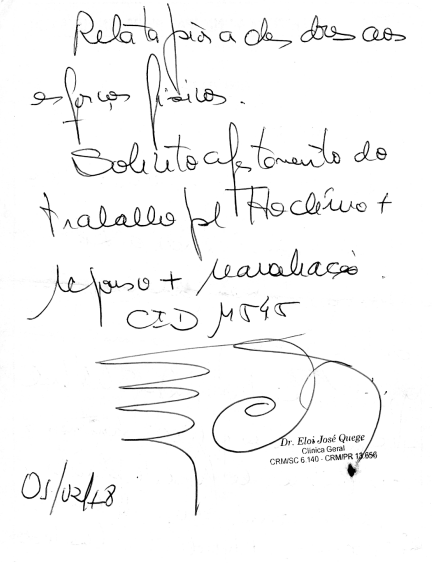 Relata piora das dores aos
esforços físicos.
Solicito afastamento do
trabalho p/ tto clínico +
repouso + reavaliação.
CID M545
Dr. Eloi José Quege
Clínica Geral
CRM/SC 6.140 - CRM/PR 13.656